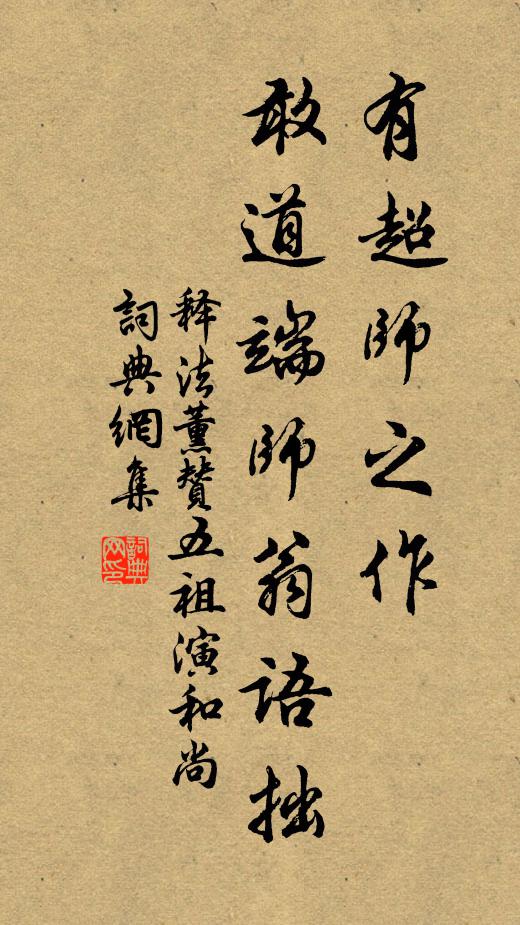 有超師之作
敢道端師翁語拙
释法薰贊五祖演和尚
詞典網集
詞典网印